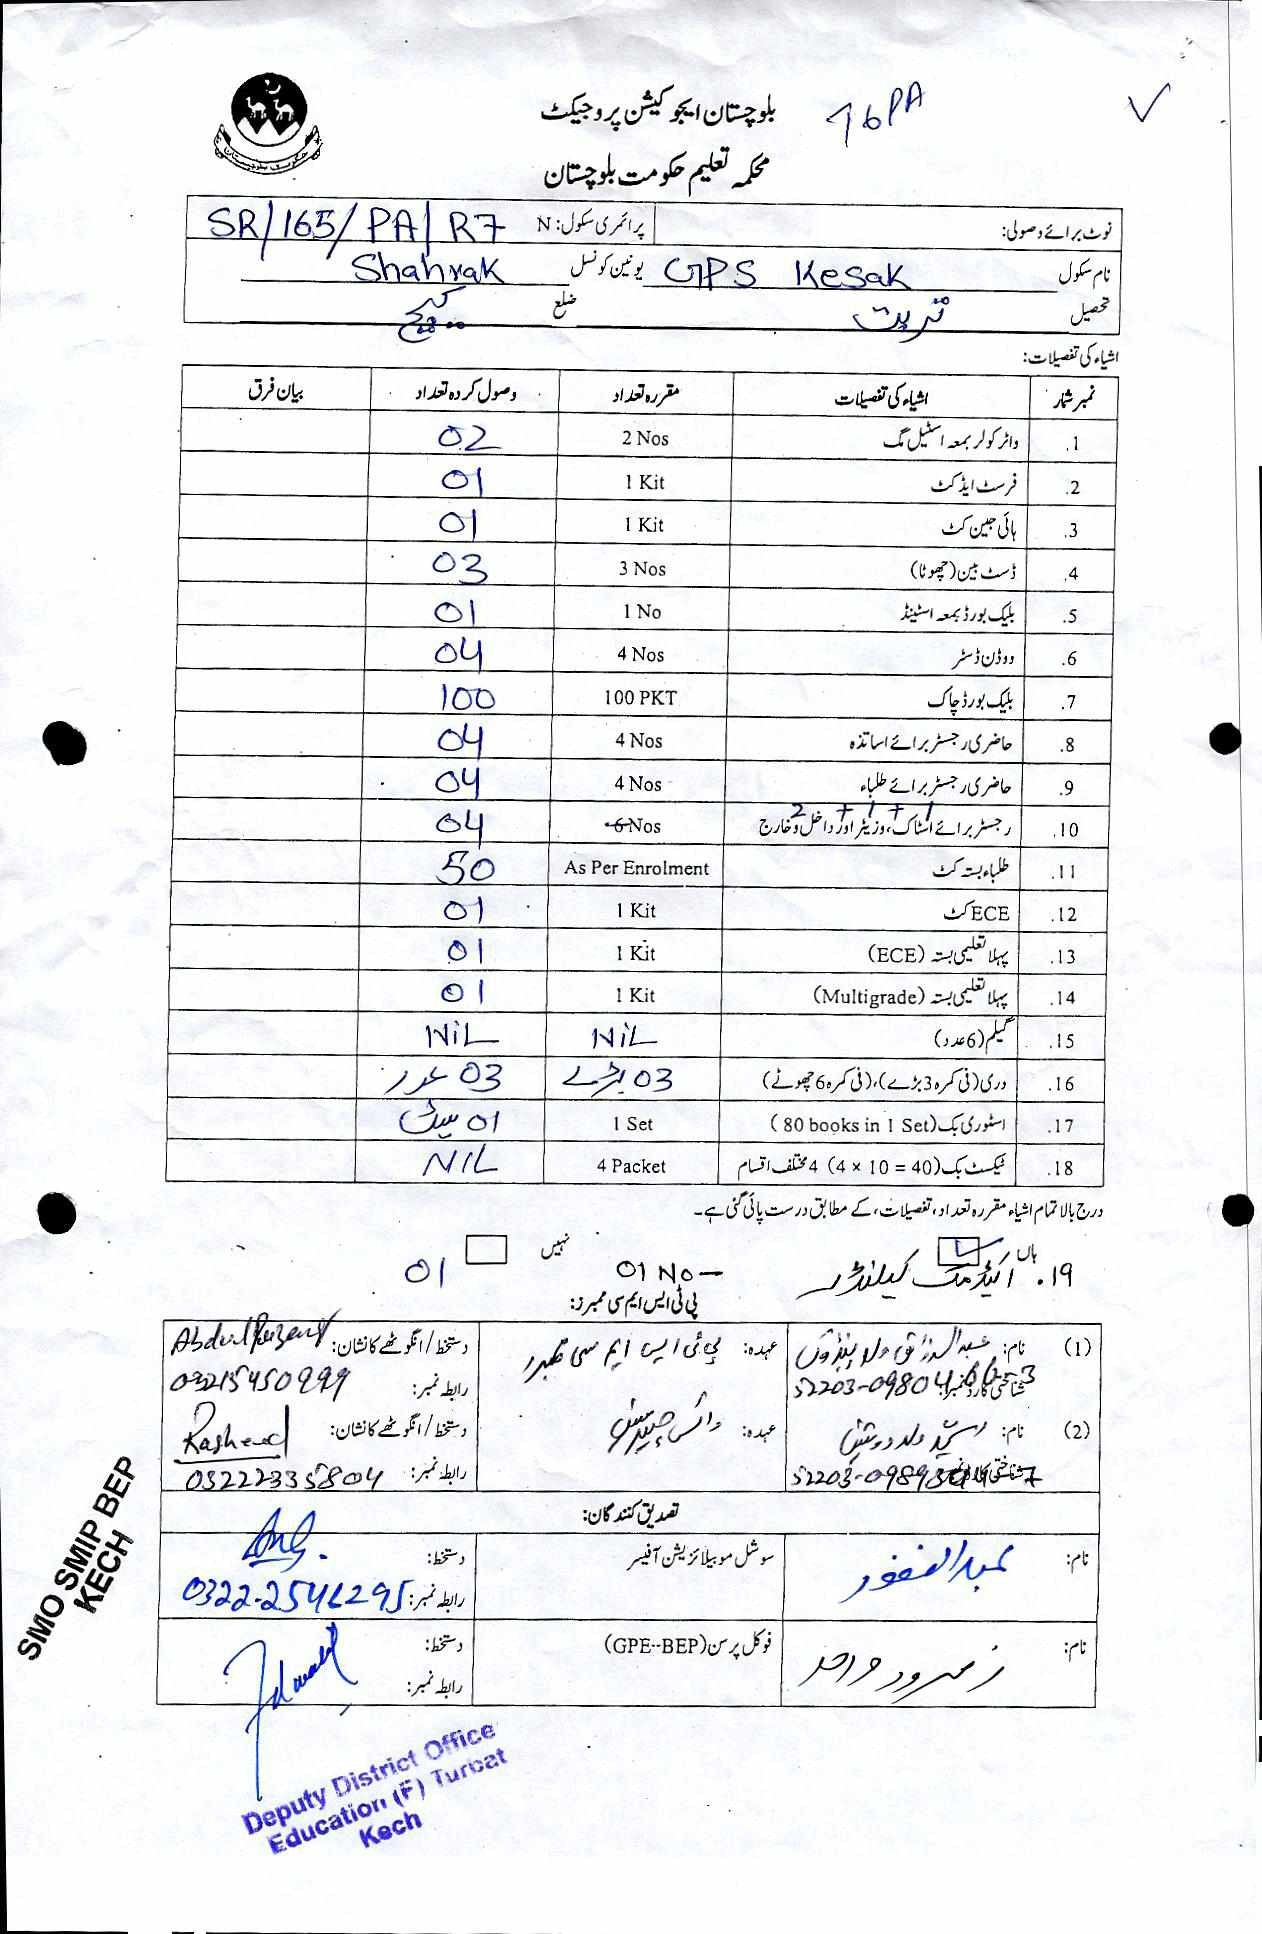 بلوچستان ایجوکیشن پروجیکٹ
محکمہ تعلیم حکومت بلوچستان
حکومت بلوچستان
نوٹ برائے وصولی: پرائمری سکول: N SR/165/PA/R7
نام سکول GPS Kesak یونین کونسل Shahrak
تحصیل تربت ضلع کیچ
اشیاء کی تفصیلات:
نمبر شمار اشیاء کی تفصیلات مقررہ تعداد وصول کردہ تعداد بیان فرق
1. واٹر کولر بمعہ اسٹیل مگ 2 Nos 02
2. فرسٹ ایڈ کٹ 1 Kit 01
3. ہائی جین کٹ 1 Kit 01
4. ڈسٹ بین (چھوٹا) 3 Nos 03
5. بلیک بورڈ بمعہ اسٹینڈ 1 No 01
6. ووڈن ڈسٹر 4 Nos 04
7. بلیک بورڈ چاک 100 PKT 100
8. حاضری رجسٹر برائے اساتذہ 4 Nos 04
9. حاضری رجسٹر برائے طلباء 4 Nos 04
2 + 1 + 1
10. رجسٹر برائے اسٹاک، وزیٹر اور داخل و خارج 6 Nos 04
11. طلباء بستہ کٹ As Per Enrolment 50
12. ECE کٹ 1 Kit 01
13. پہلا تعلیمی بستہ (ECE) 1 Kit 01
14. پہلا تعلیمی بستہ (Multigrade) 1 Kit 01
15. گیلم (6 عدد) NiL NiL
16. دری (فی کمرہ 3 بڑے)، (فی کمرہ 6 چھوٹے) 03 بڑے 03 عدد
17. اسٹوری بک (80 books in 1 Set) 1 Set 01 سیٹ
18. ٹیکسٹ بک (4 × 10 = 40) 4 مختلف اقسام 4 Packet NIL
درج بالا تمام اشیاء مقررہ تعداد، تفصیلات، کے مطابق درست پائی گئی ہے۔
ہاں نہیں
۱۹. اکیڈمک کیلنڈر 01 No 01
پی ٹی ایس ایم سی ممبرز:
(1) نام: عبدالرزاق ولد عہدہ: پی ٹی ایس ایم سی ممبر دستخط/انگوٹھے کا نشان:
شناختی کارڈ نمبر: رابطہ نمبر:
(2) نام: رشید ولد عہدہ: وائس چیئرمین دستخط/انگوٹھے کا نشان: Rasheed
شناختی کارڈ نمبر: رابطہ نمبر: 03222335804
تصدیق کنندگان:
نام: عبدالغفور سوشل موبیلائزیشن آفیسر دستخط:
رابطہ نمبر:
نام: فوکل پرسن (GPE--BEP) دستخط:
رابطہ نمبر:
SMO SMIP BEP
KECH
Deputy District Office
Education (F) Turbat
Kech